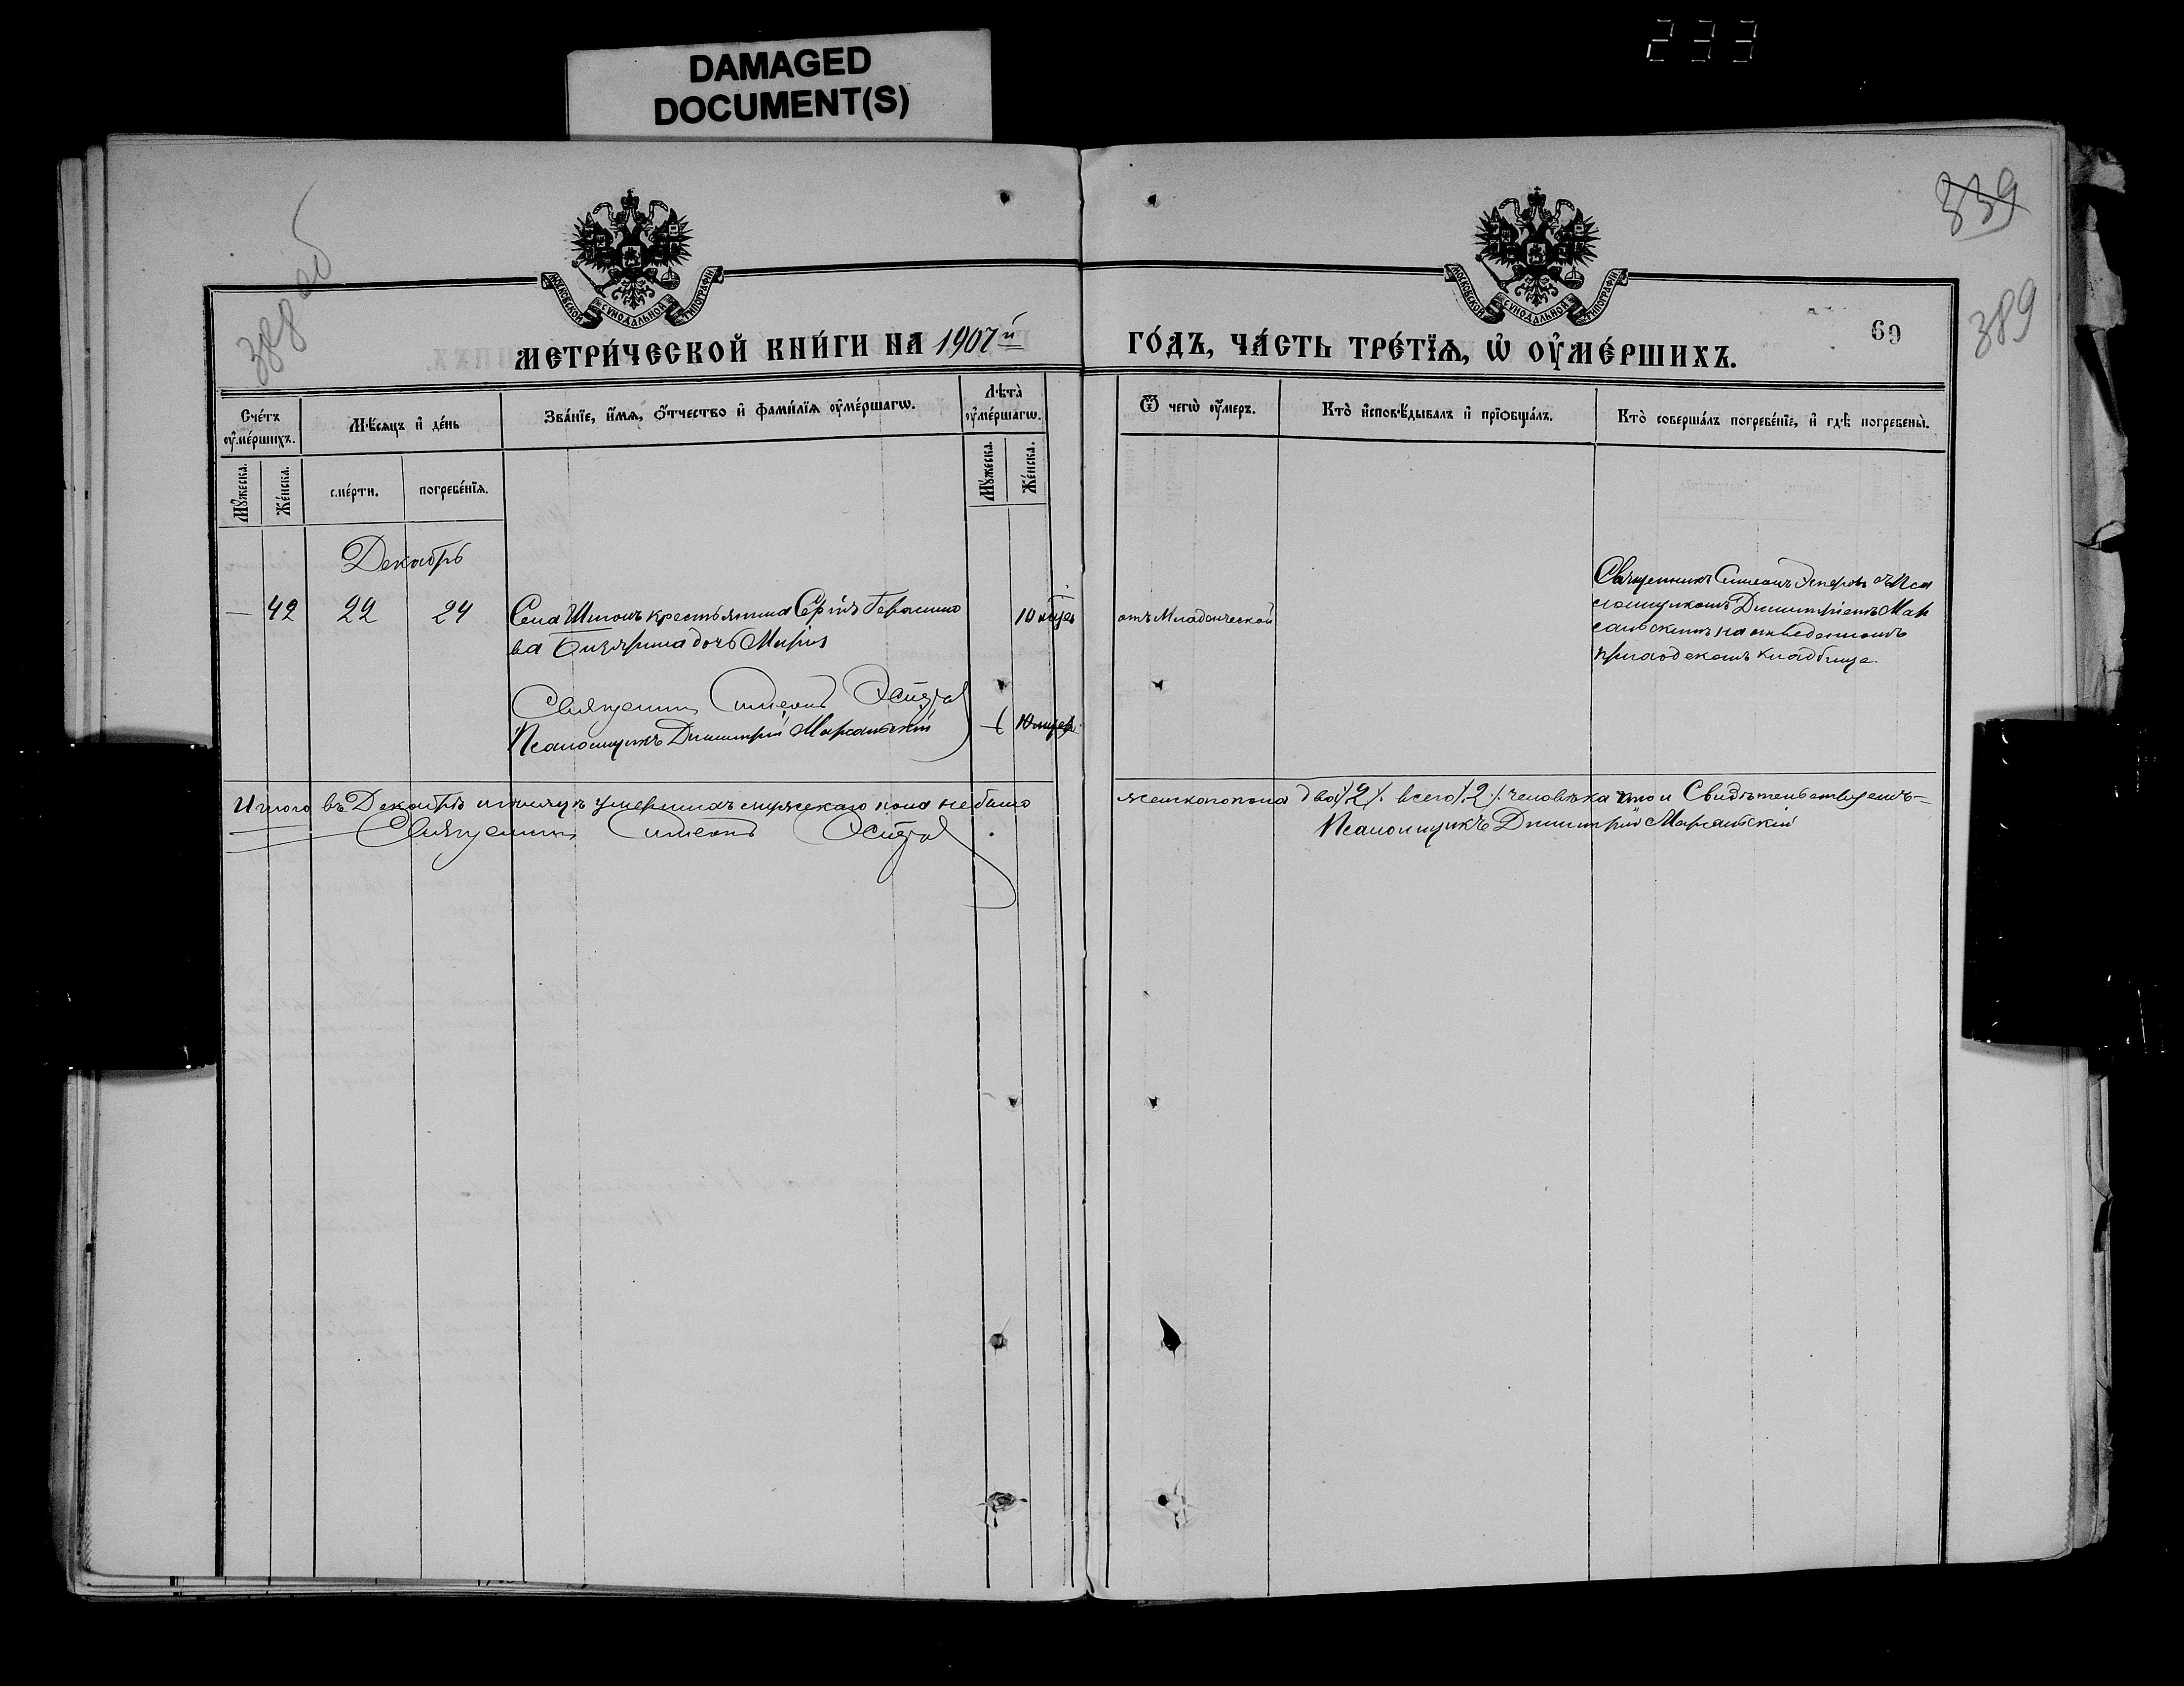 DAMAGED
DOCUMENT(S)
233
339
389
388 об
69
МОСКОВСКОЙ СѴНОДАЛЬНОЙ ТИПОГРАФІИ
МОСКОВСКОЙ СѴНОДАЛЬНОЙ ТИПОГРАФІИ
МЕТРИ́ЧЕСКОЙ КНИ́ГИ НА 1907й
ГО́ДЪ, ЧА́СТЬ ТРЕ́ТЇѦ, Ѡ҆ ОУ҆МЕ́РШИХЪ.
Сче́тъ оу҆ме́ршихъ.
Мꙋ́жеска.
Же́нска.
Мѣ́сѧцъ и҆ де́нь
сме́рти.
погребе́нїѧ.
Зва́нїе, и҆́мѧ, ѻ҆́тчество и҆ фами́лїѧ оу҆ме́ршагѡ.
Лѣ́та оу҆ме́ршагѡ.
Мꙋ́жеска.
Же́нска.
Ѿ чегѡ̀ оу҆́меръ.
Кто̀ и҆сповѣ́дывалъ и҆ прїѻбща́лъ.
Кто̀ соверша́лъ погребе́нїе, и҆ гдѣ̀ погребены̀.
Декабрь
— 42 22 24
Села крестьянина Сергія Герасимо
ва дочь Марія
10 мѣсяц
отъ Младенческой
Священникъ Симеонъ съ Пса
ломщикомъ Димитріемъ Мар
сальскимъ на отведенномъ
приходскомъ кладбище
Священникъ Симеонъ
Псаломщикъ Димитрій Марсальскій
10 мѣсяц
Итого въ Декабрѣ мѣсяцѣ умершихъ мужескаго пола не было
женскаго пола два /2/. всего /2/. человѣка что и Свидѣтельствуемъ—
Священникъ Симеонъ
Псаломщикъ Димитрій Марсальскій